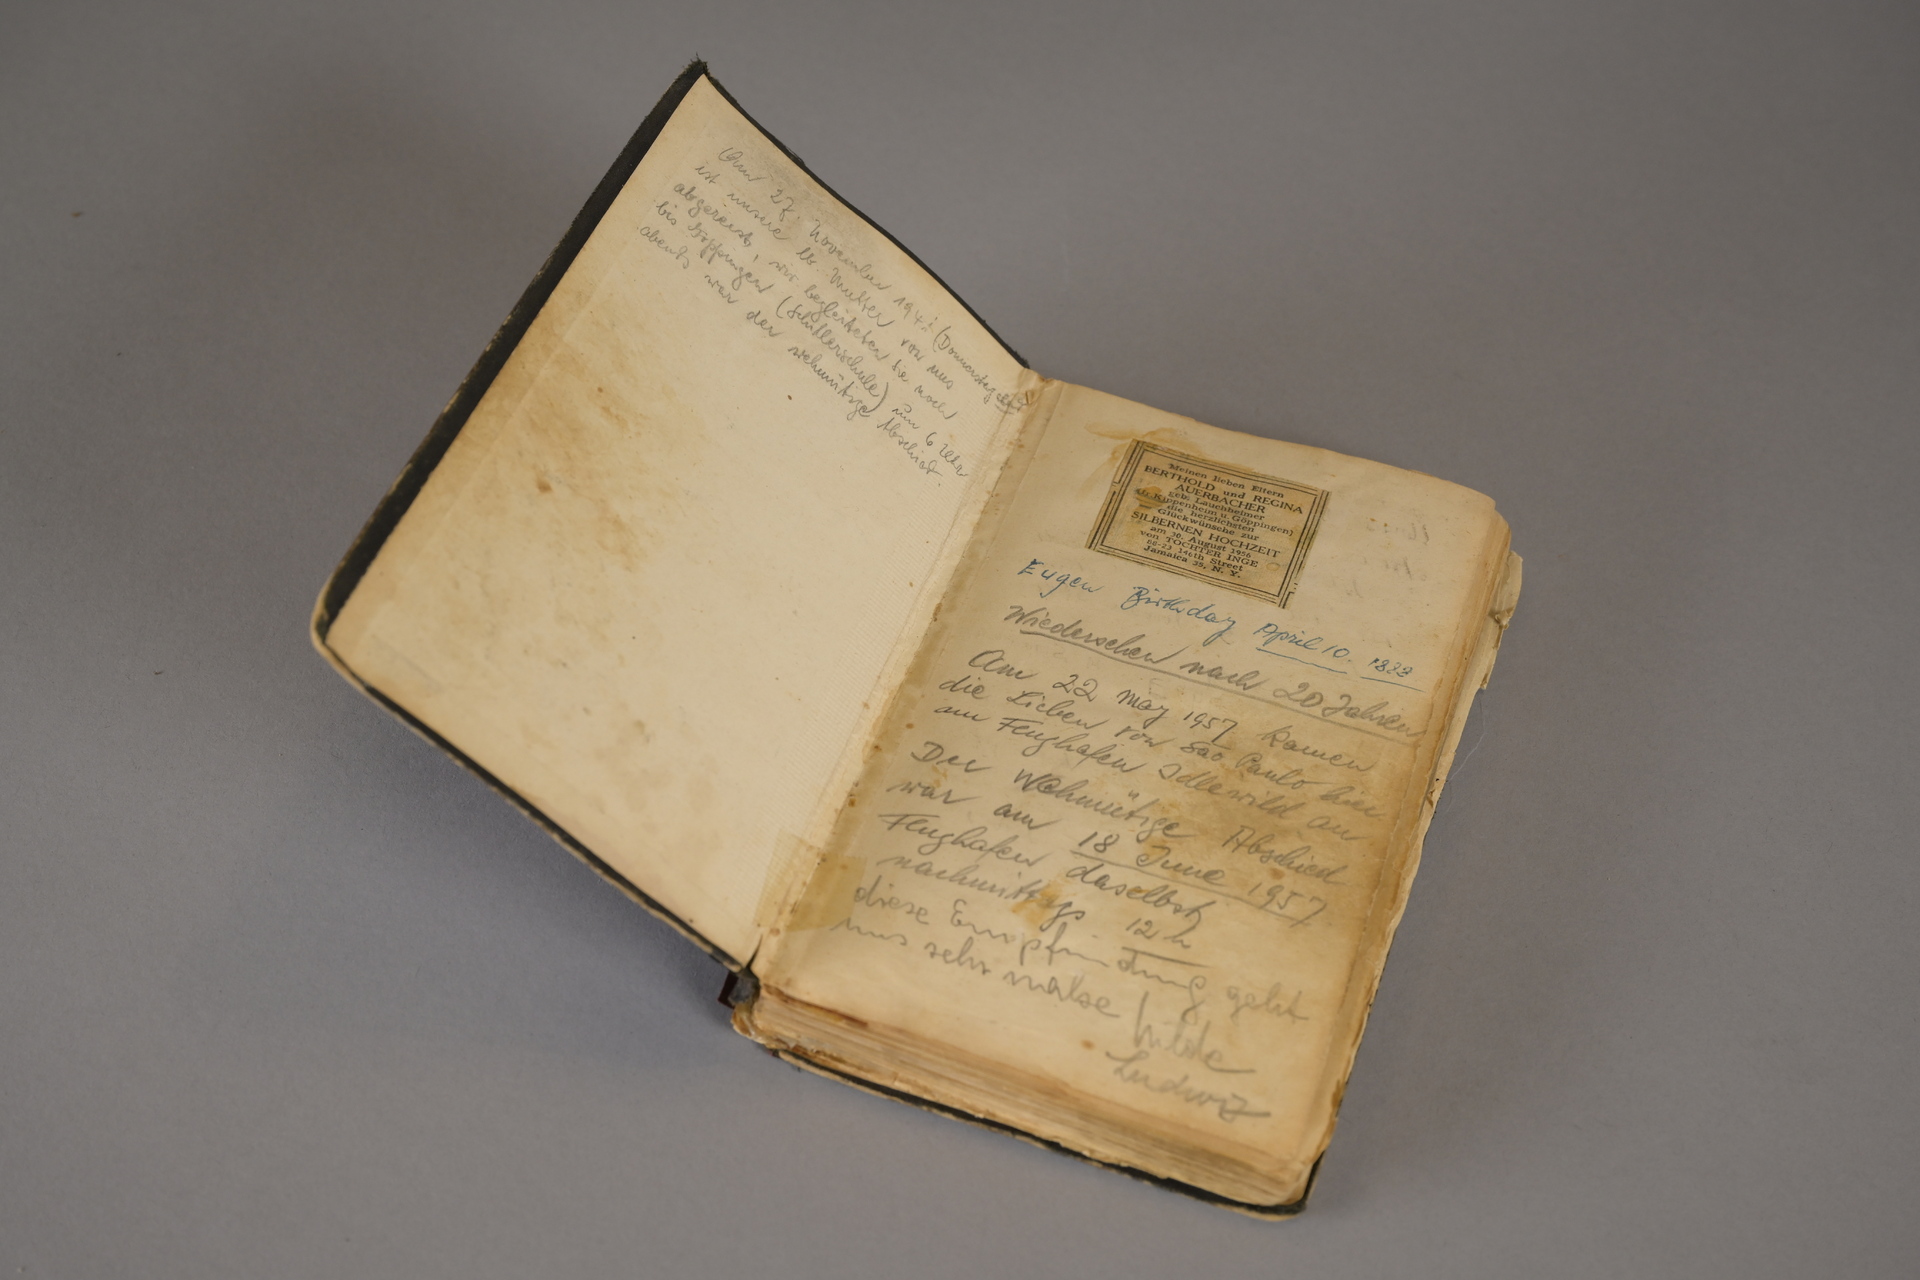 Am 27. November 1941 (Donnerstag
ist unsere lb. Mutter von uns
abgereist, wir begleiteten sie noch
bis Göppingen (Schillerschule) um 6 Uhr
abends war der wehmütige Abschied.
Meinen lieben Eltern
BERTHOLD und REGINA
AUERBACHER
geb. Lauchheimer
(fr. Kippenheim u. Göppingen)
die herzlichsten
Glückwünsche zur
SILBERNEN HOCHZEIT
am 30. August 1956
von TOCHTER INGE
88-23 146th Street
Jamaica 35, N. Y.
Eugen Birthday April 10. 1888
Wiedersehen nach 20 Jahren
Am 22 May 1957 kamen
die Lieben von Sao Paulo hier
am Flughafen Idlewild an
Der Wehmütige Abschied
war am 18 June 1957
Flughafen daselbst
nachmittags 12 h
diese Empfindung geht
uns sehr nahe
Hilde
Ludwig